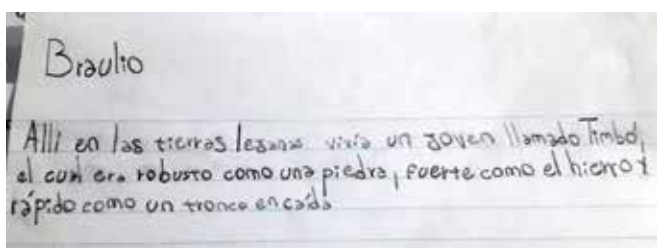 Braulio
Alli en las tierras lejanas vivia un joven llamado Timbó,
el cual era robusto como una piedra, fuerte como el hierro y
rápido como un tronco en caída